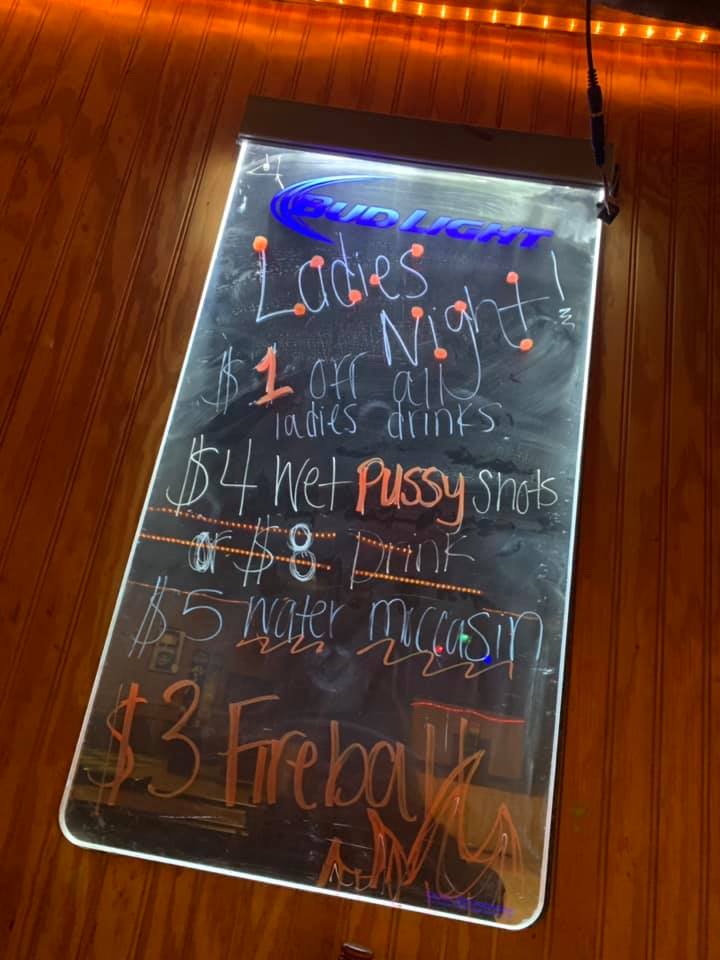 BUD LIGHT
Ladies
Night!
$1 off all
ladies drinks
$4 Wet Pussy shots
or $8 Drink
$5 water moccasin
$3 Fireball